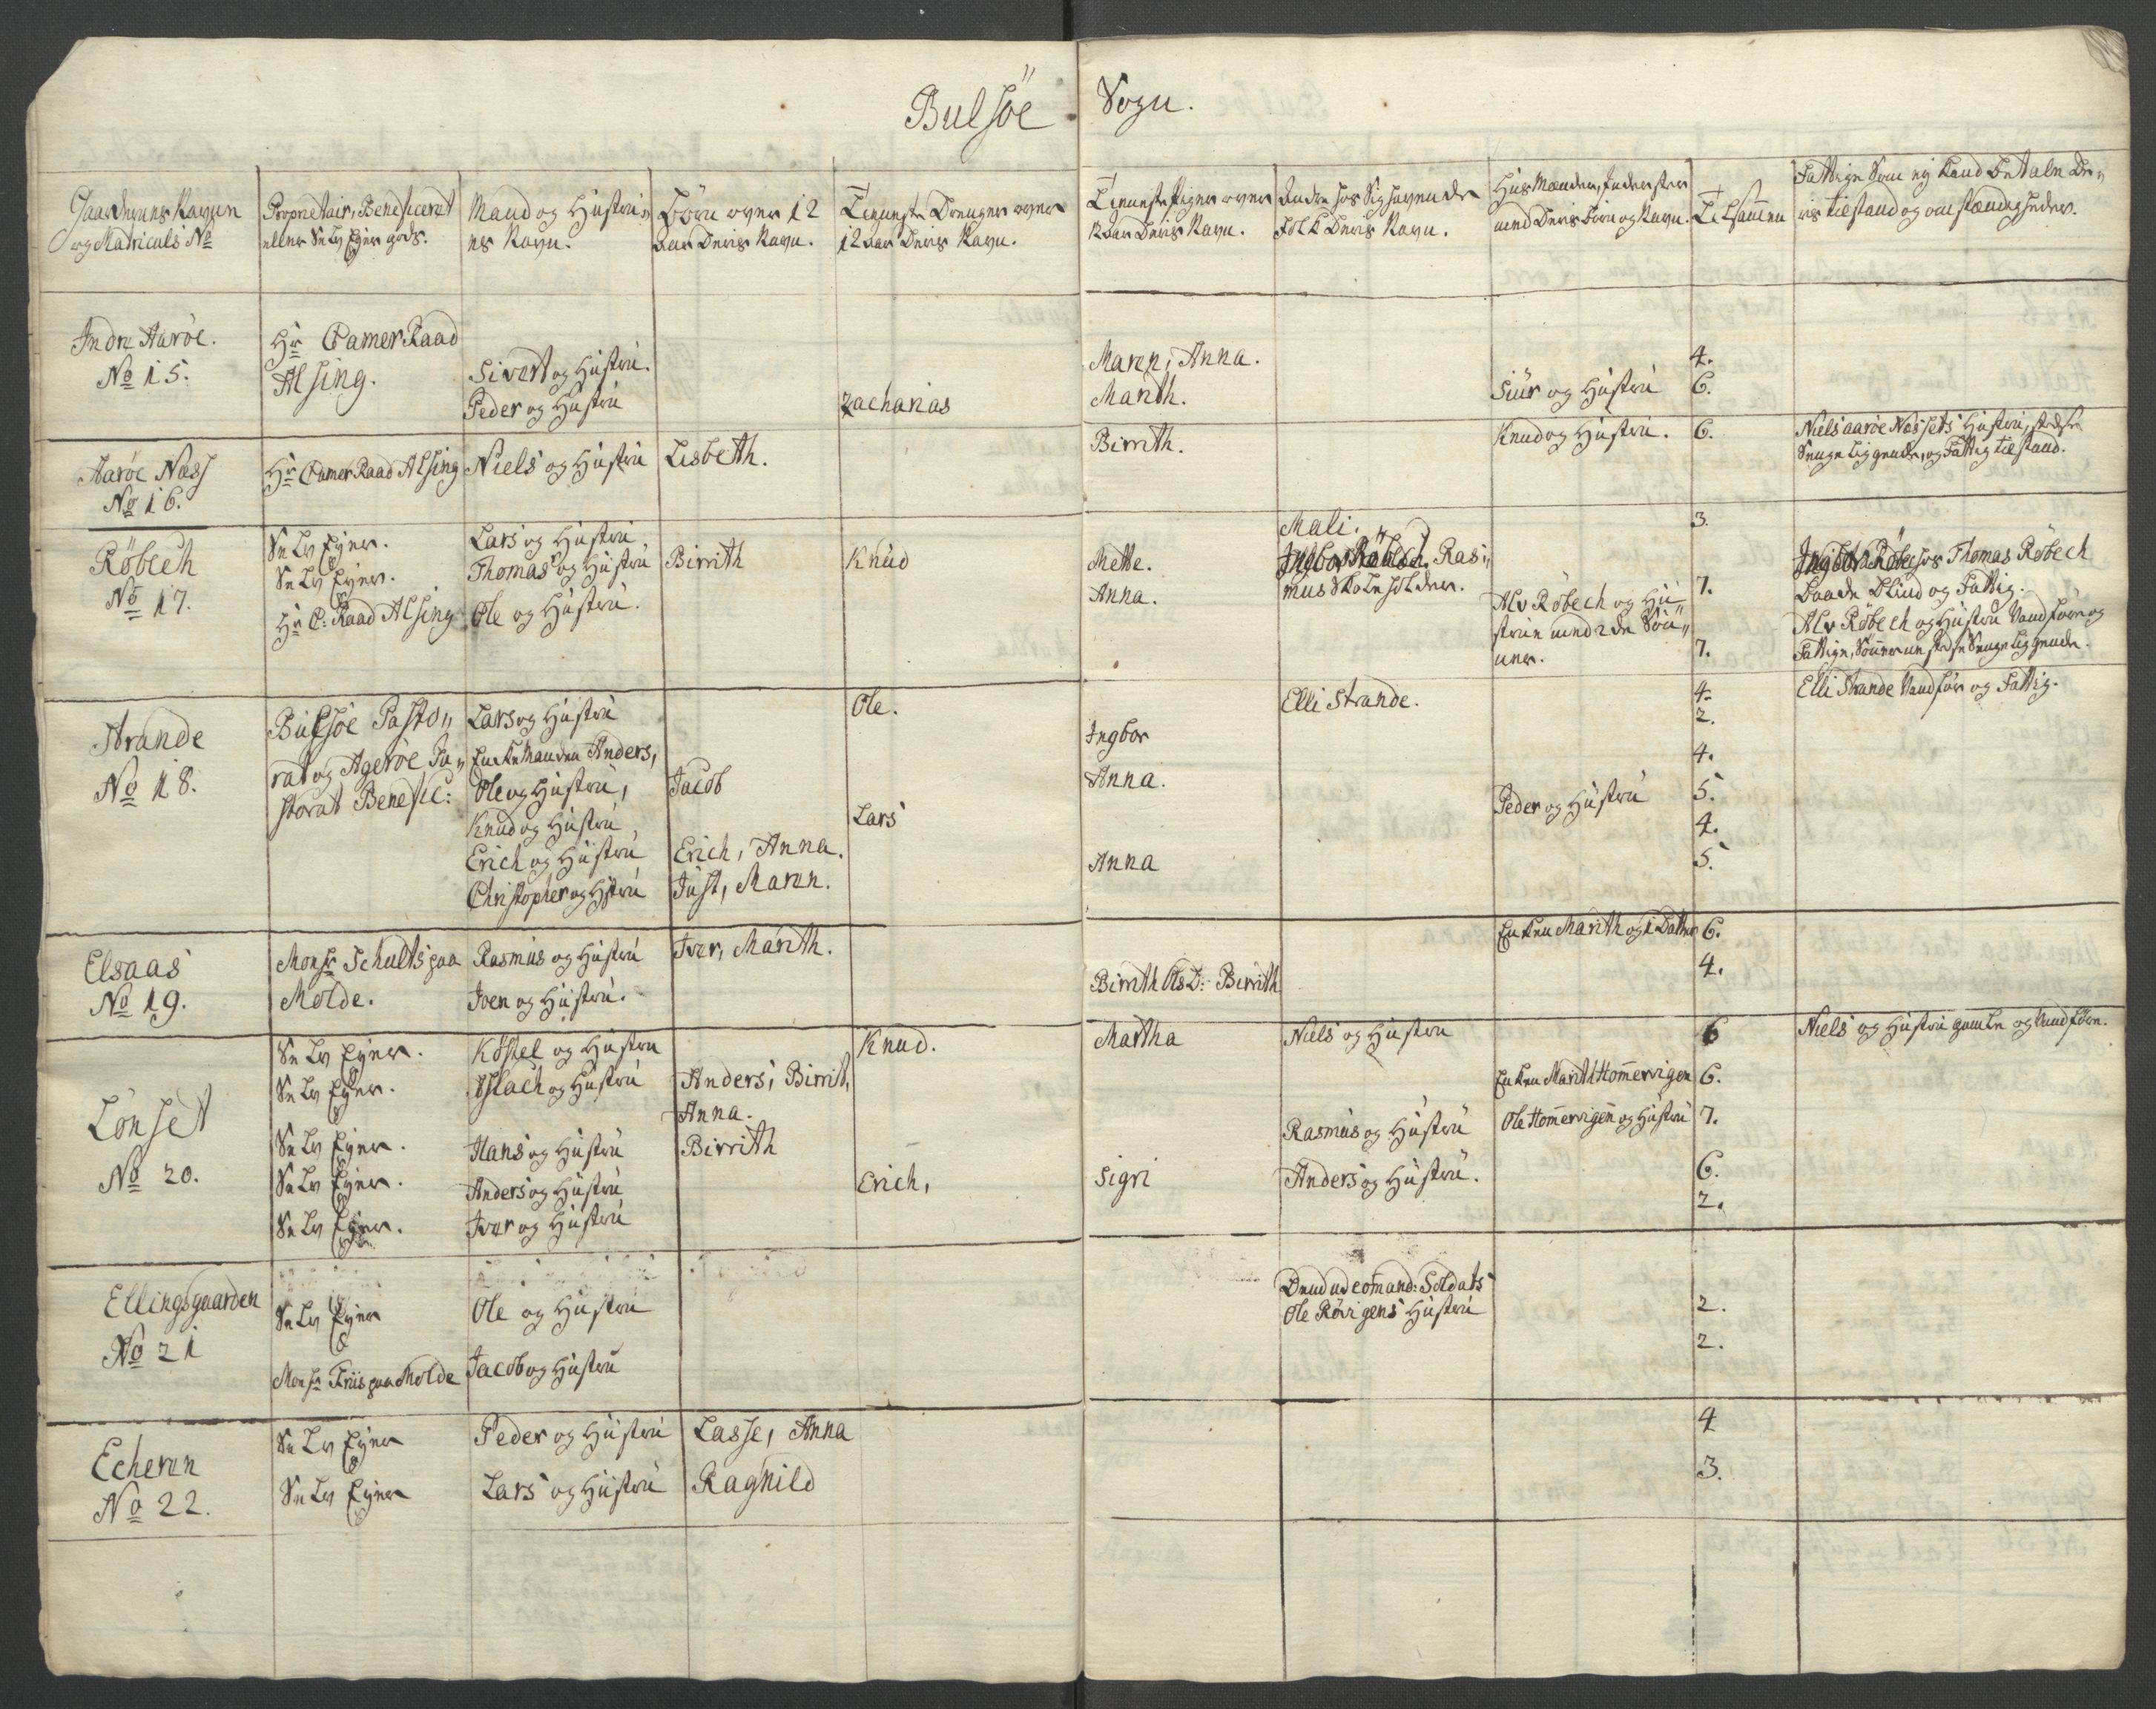 Bulsöe Sogn.
Gaardernes Navn
og Matriculs No
Proprietair, Beneficeret
eller Selv Eyer gods.
Mand og Hustru„
es Navn.
Börn over 12
aar Deris Navn.
Tieneste Drenger over
12 aar Deris Navn.
Tieneste Piger over
12 aar Deris Navn.
Andre hos Sig havende
Folk Deris Navn.
HusMænder, Inderster
med Deris Börn og Navn.
Tilsamen
Fattige Som ey Kand Betale De„
ris tilstand og omstændigheder.
Indre Aaröe.
No 15.
Hr CamerRaad
Alsing.
Sivert og Hustru.
Peder og Hustru
Zacharias
Maren, Anna.
Marith.
Siur og Hustru
4.
6.
Aaröe Næss
No 16.
Hr CamerRaad Alsing
Niels og Hustru
Lisbeth.
Birrith.
Knud og Hustru.
6.
Niels aaröe Næssets Hustru, stedse
Sengeliggende, og Fattig tilstand.
Röbech
No 17.
Selv Eyer.
Selv Eyer.
Hr C: Raad Alsing
Lars og Hustru,
Thomas og Hustru
Ole og Hustru.
Birrith
Knud
Mette.
Anna.
Mali.
Ingbor Röbech. Ras„
mus Skoleholder.
Alv Röbech og Hu
strue med 2de Sön„
ner.
3.
7.
7.
Ingbor Röbe hos Thomas Röbech
Baade Blind og Fattig.
Alv Röbech og Hustru Vandföre og
Fattige, Sönnerne stedse Sengeliggende.
Strande
No 18.
Bulsöe Pasto„
rat og Ageröe Pa„
storat Benefic:
Lars og Hustru
Enke Manden Anders,
Ole og Hustru,
Knud og Hustru
Erich og Hustru
Christopher og Hustru
Jacob
Erich, Anna.
Just, Maren.
Ole.
Lars
Ingbor
Anna.
Anna
Elli Strande.
Peder og Hustru
4.
2.
4.
5.
4.
5.
Elli Strande Vandför og Fattig.
Elsaas
No 19.
Monsr Schults paa
Molde.
Rasmus og Hustru
Joen og Hustru.
Iver, Marith.
Birrith Ols D: Birrith
Enken Marith og 1 Datter
6.
4.
Lönset
No 20.
Selv Eyer.
Selv Eyer.
Selv Eyer.
Selv Eyer.
Selv Eyer.
Köstel og Hustru
Aslach og Hustru
Hans og Hustru
Anders og Hustru
Iver og Hustru
Anders, Birrit,
Anna.
Birrith
Knud.
Erich,
Martha
Sigri
Niels og Hustru
Rasmus og Hustru
Anders og Hustru.
Enken Marith Homervigen
Ole Homervigen og Hustru
6
6.
7.
6.
2.
Niels og Hustru gamle og Vandföre.
Ellingsgaarden
No 21
Selv Eyer
Monsr Friis paa Molde
Ole og Hustru
Jacob og Hustru
Ole Rövigens Hustru
2.
2.
Echeren
No 22.
Selv Eyer
Selv Eyer
Peder og Hustru
Lars og Hustru
Lasse, Anna
Ragnild
4
3.